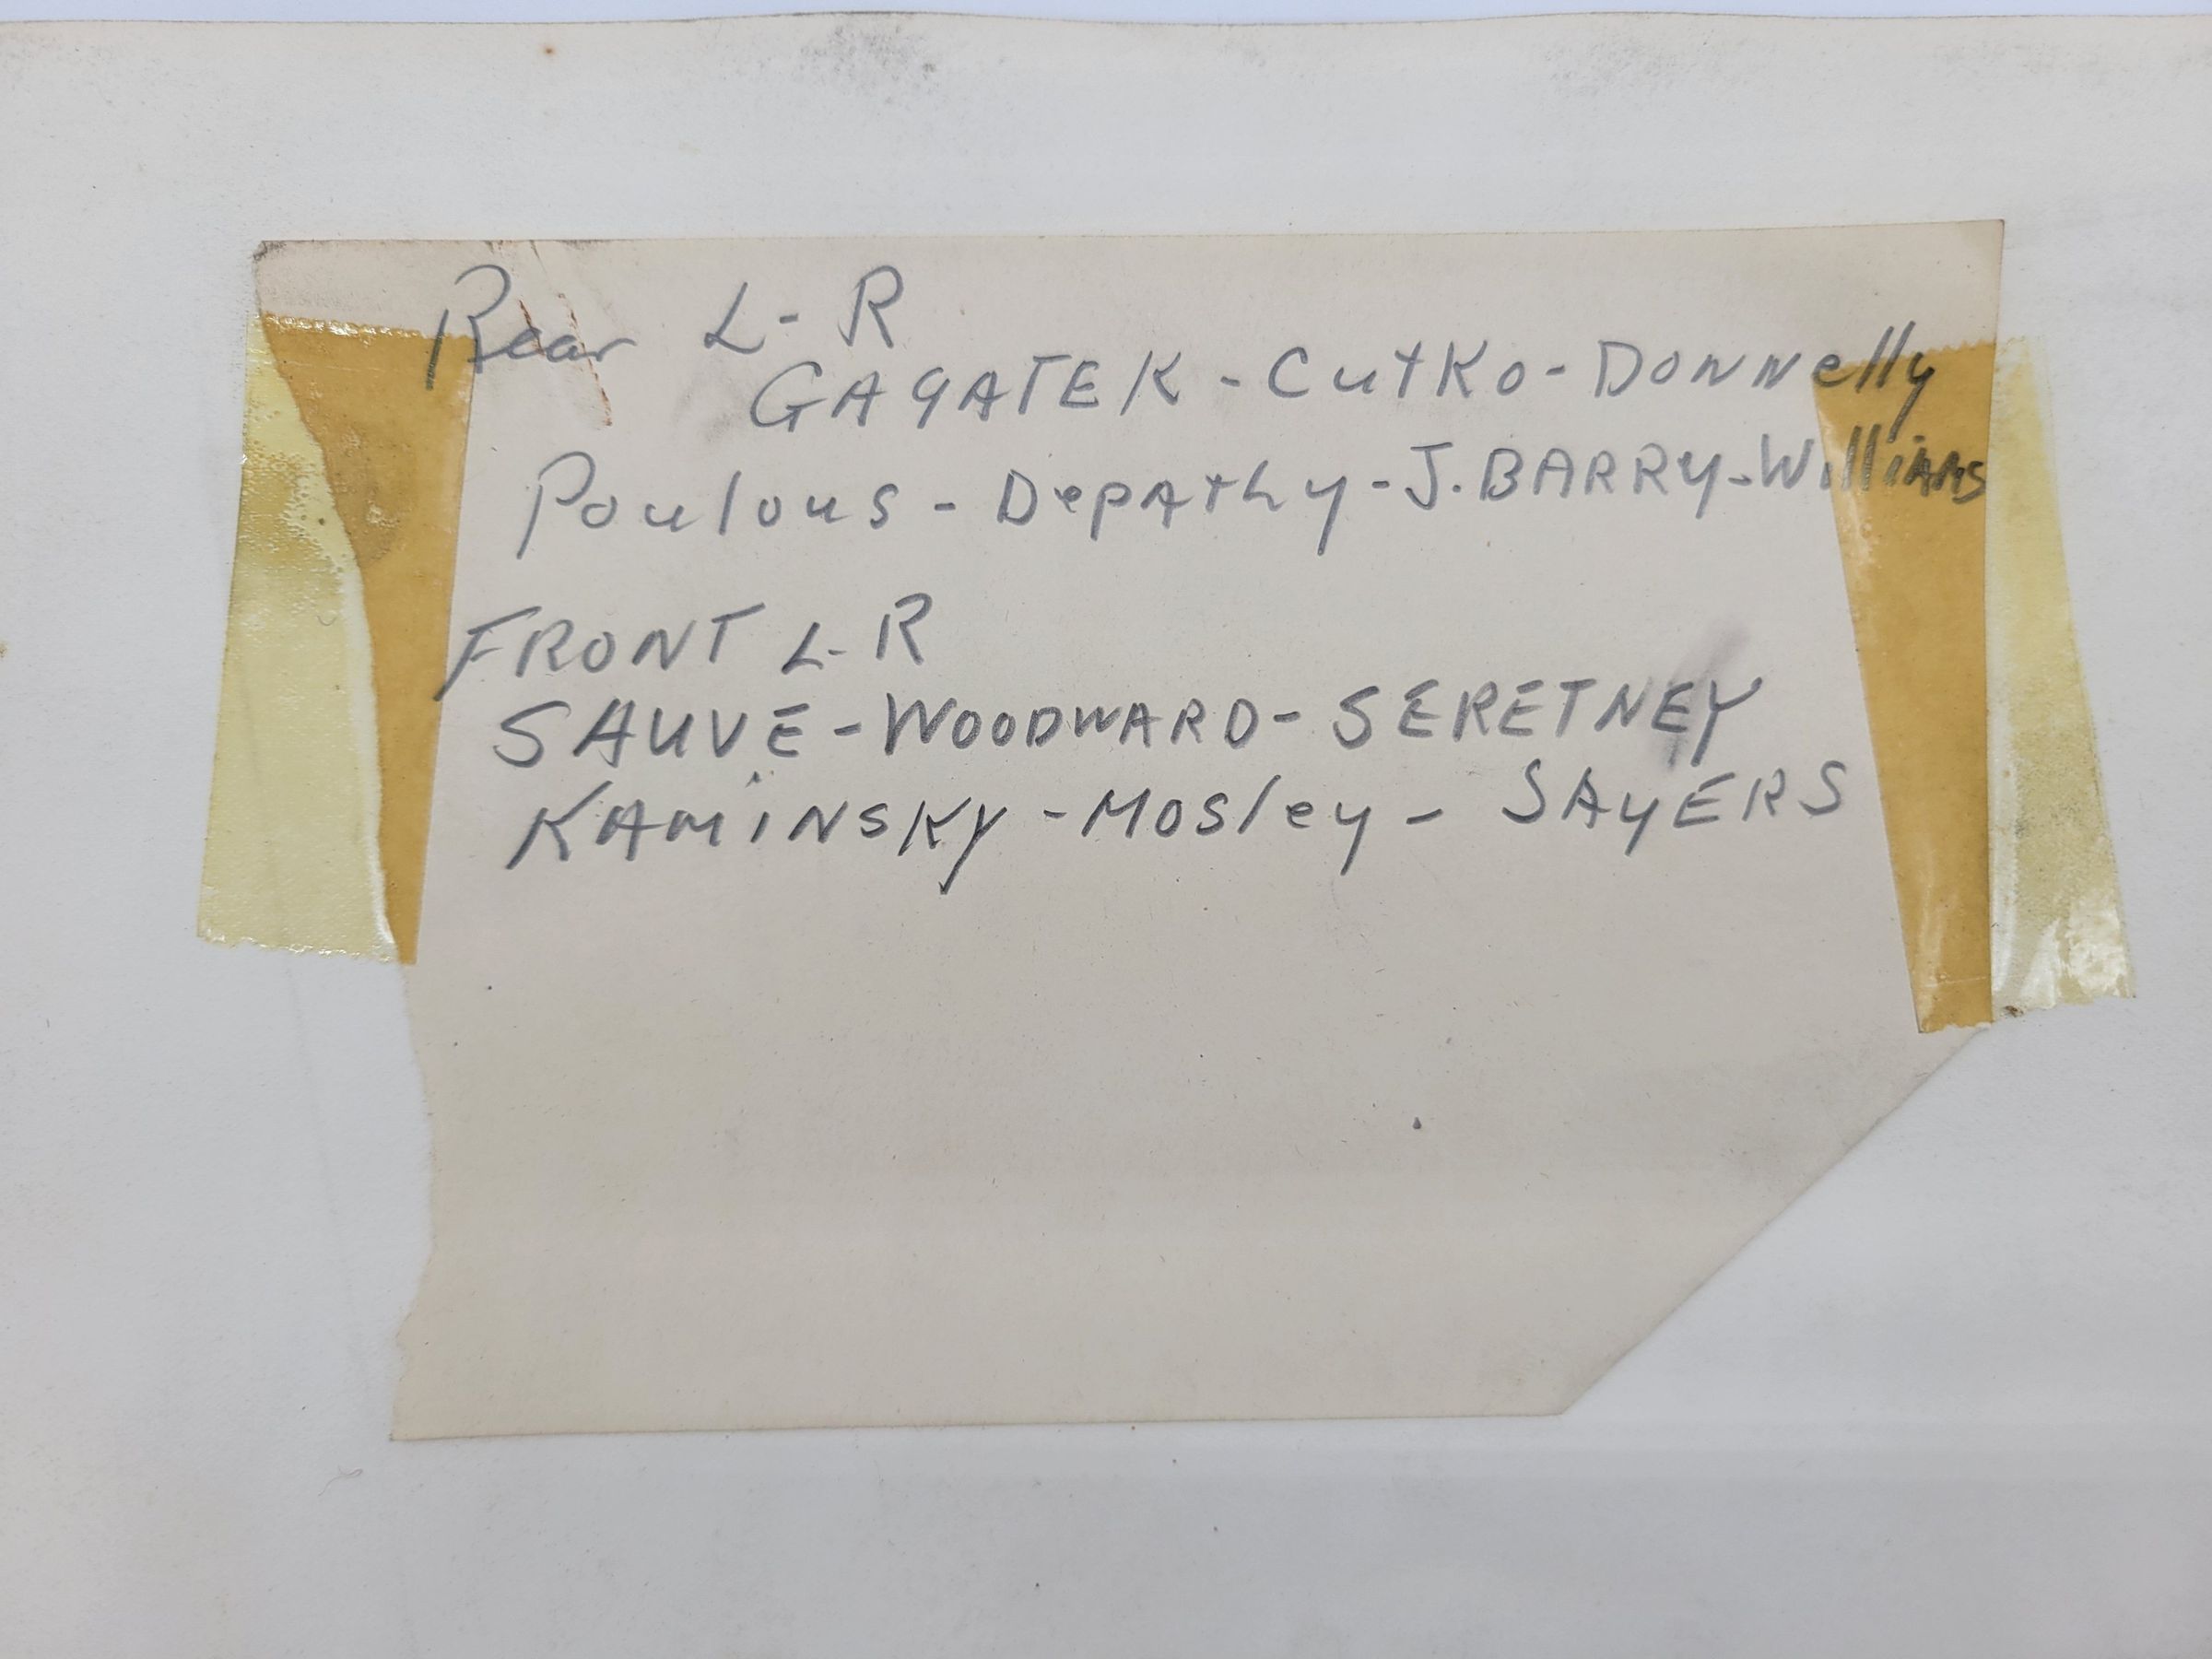 Rear L-R
GAgATEK - CutKo - DoNNelly
Poulous - DepAthy - J. BARRY - WilliAMS
FRONT L-R
SAUVE - WOODWARD - SERETNEY
KAMiNSKY - MOSley - SAyERS